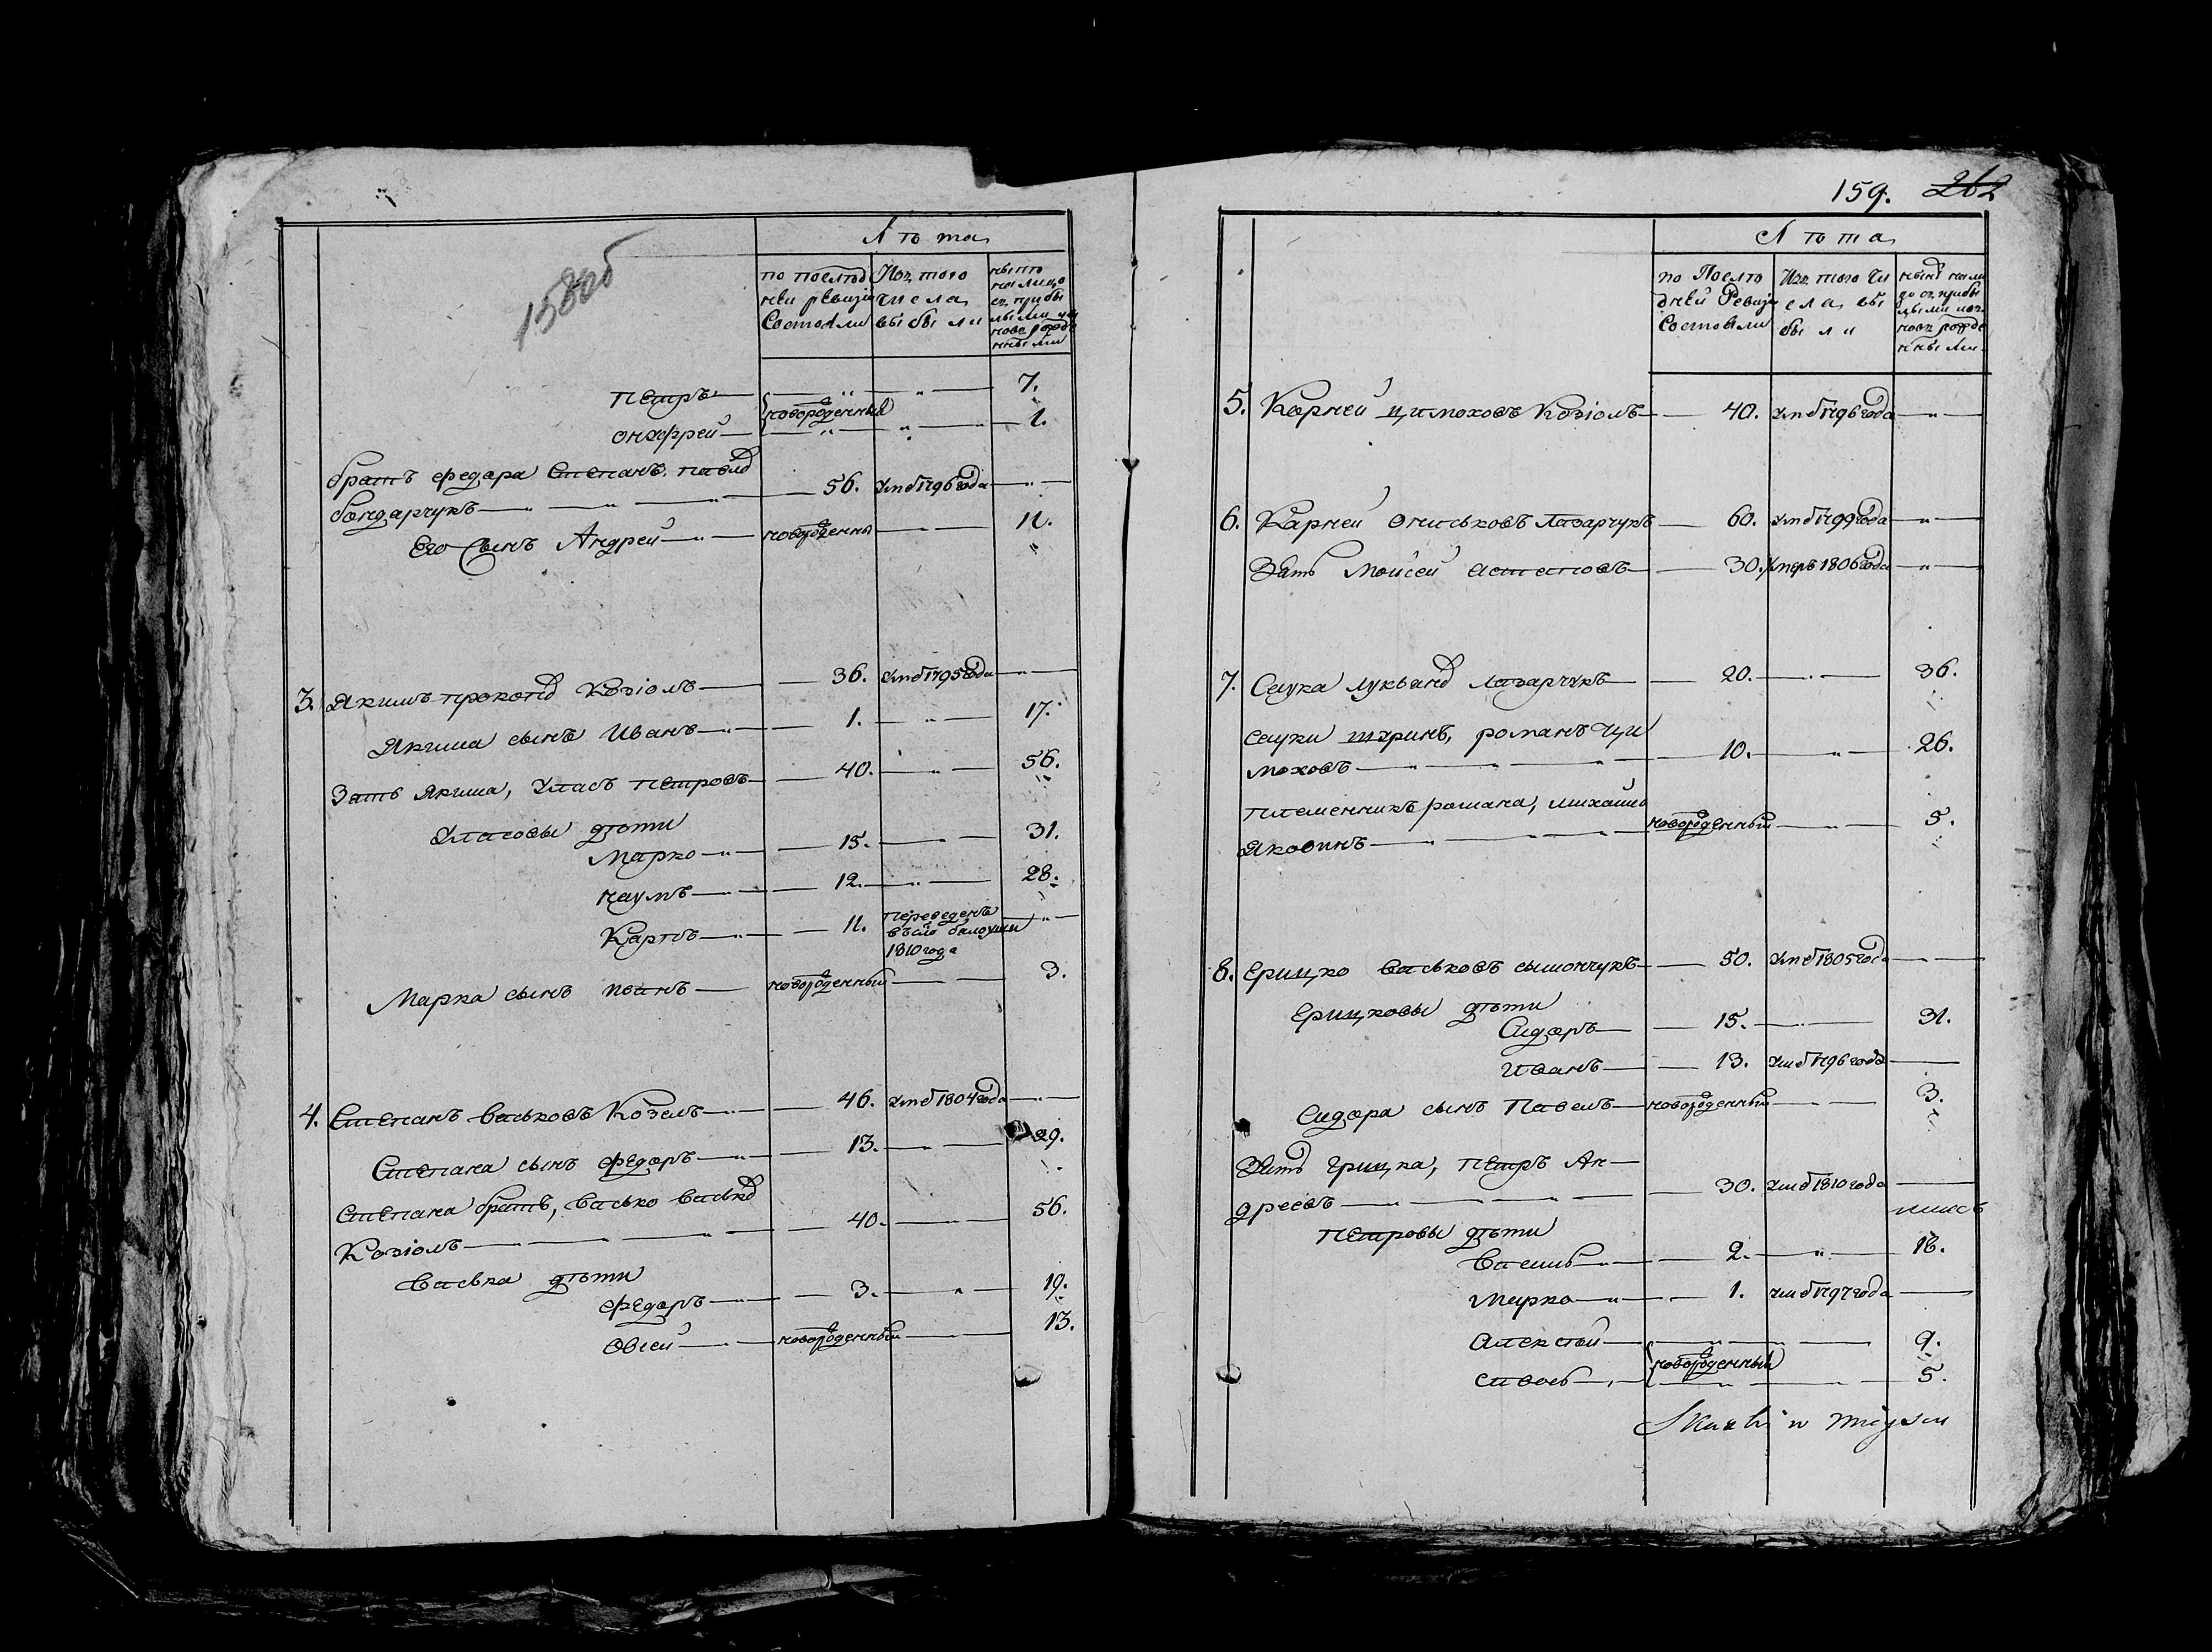 158об
Лѣта
по послѣд
ней ревизіи
состояли
Изъ того
числа
выбыли
нынѣ
на лицо
съ прибы
лыми и
новорожде
нными
Петръ — 7.
новорожденный
Онуфрей — 1.
братъ Федора Степанъ Павлов
бондарчукъ — 56. Умеб 1796 года
Его Сынъ Андрей — новорожденны — 11.
3. Якимъ Прокопов Козіолъ — 36. Умеб 1795 года
Якима сынъ Иванъ — 1. — 17.
Зять Якима, Уласъ Петровъ — 40. — 56.
Уласовы дѣти
Марко — 15. — 31.
Наумъ — 12. — 28.
Карпъ — 11. переведенъ
въсло
1810 года
Марка сынъ Иванъ — новорожденный — 3.
4. Степанъ Васьковъ Козелъ — 46. Умеб 1804 года
Степана сынъ Федоръ — 13. — 29.
Степана братъ, Васько Васьков
Козіолъ — 40. — 56.
Васька дѣти
Федоръ — 3. — 19.
Овсей — новорожденный — 13.
159. 262
Лѣта
по Послѣ
дней Ревизіи
Состояли
Изъ того чи
сла вы
были
нынѣ нали
цо съ прибы
лыми
новорожде
нными
5. Карней Цимоховъ Козіолъ — 40. Умеб 1796 года
6. Карней Ониськовъ Лазарчукъ — 60. Умеб 1799 года
Зять Мойсей Остаповъ — 30. Умеръ 1806 года
7. Саука Лукьянов Лазарчукъ — 20. — 36.
Сауки шуринъ, Романъ Ци
моховъ — 10. — 26.
племенникъ Романа, Михайло
Яковинъ — новорожденный — 5.
8. Грицко Васьковъ Сымончукъ — 50. Умеб 1805 года
Грицковы дѣти
Сидоръ — 15. — 31.
Иванъ — 13. Умеб 1796 года
Сидора сынъ Павелъ — новорожденный — 3.
Зять Грицка, Петръ Ан
дреевъ — 30. Умеб 1810 года
Петровы дѣти
Василь — 2. — 18.
Марко — 1. Умеб 1797 года
Алексѣй — 9.
новорожденный
5.